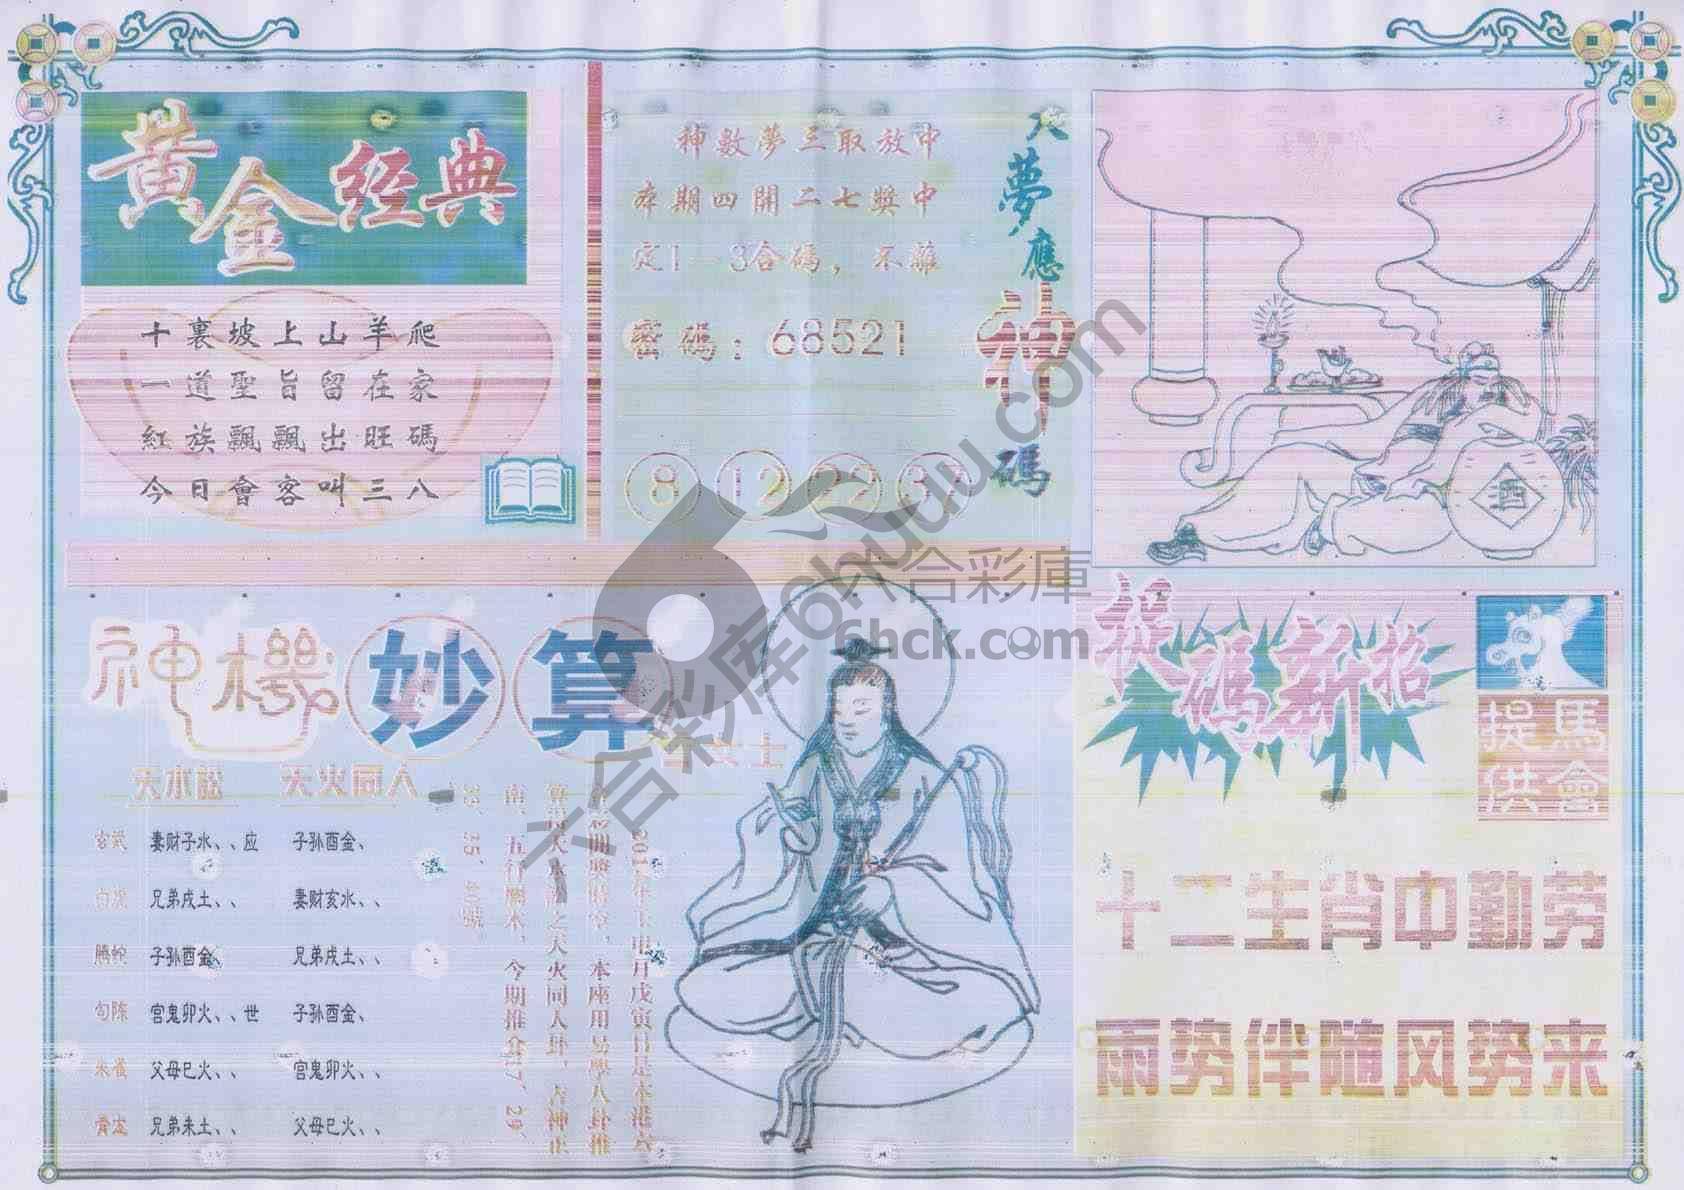 黄金经典
十裏坡上山羊爬
一道聖旨留在家
紅旗飄飄出旺碼
今日會客叫三八
神數夢三取放中
本期四開二七獎中
定1—3合碼，不離
密碼：68521
8 12 22 37
大夢應神碼
酒
神機妙算
天水訟 天火同人
玄武 妻财子水、、应 子孙酉金、
白虎 兄弟戌土、、 妻财亥水、、
腾蛇 子孙酉金、 兄弟戌土、、
勾陈 官鬼卯火、、世 子孙酉金、
朱雀 父母巳火、、 官鬼卯火、、
青龙 兄弟未土、、 父母巳火、、
月戊寅日是本港六
本座用易學八卦推
之天火同人卦，占神正
南，五行屬木，今期推介17、29、
六合彩库6huuu.com
六合彩庫
6hck.com
提碼新招
馬會
提供
十二生肖中勤劳
雨势伴随风势来